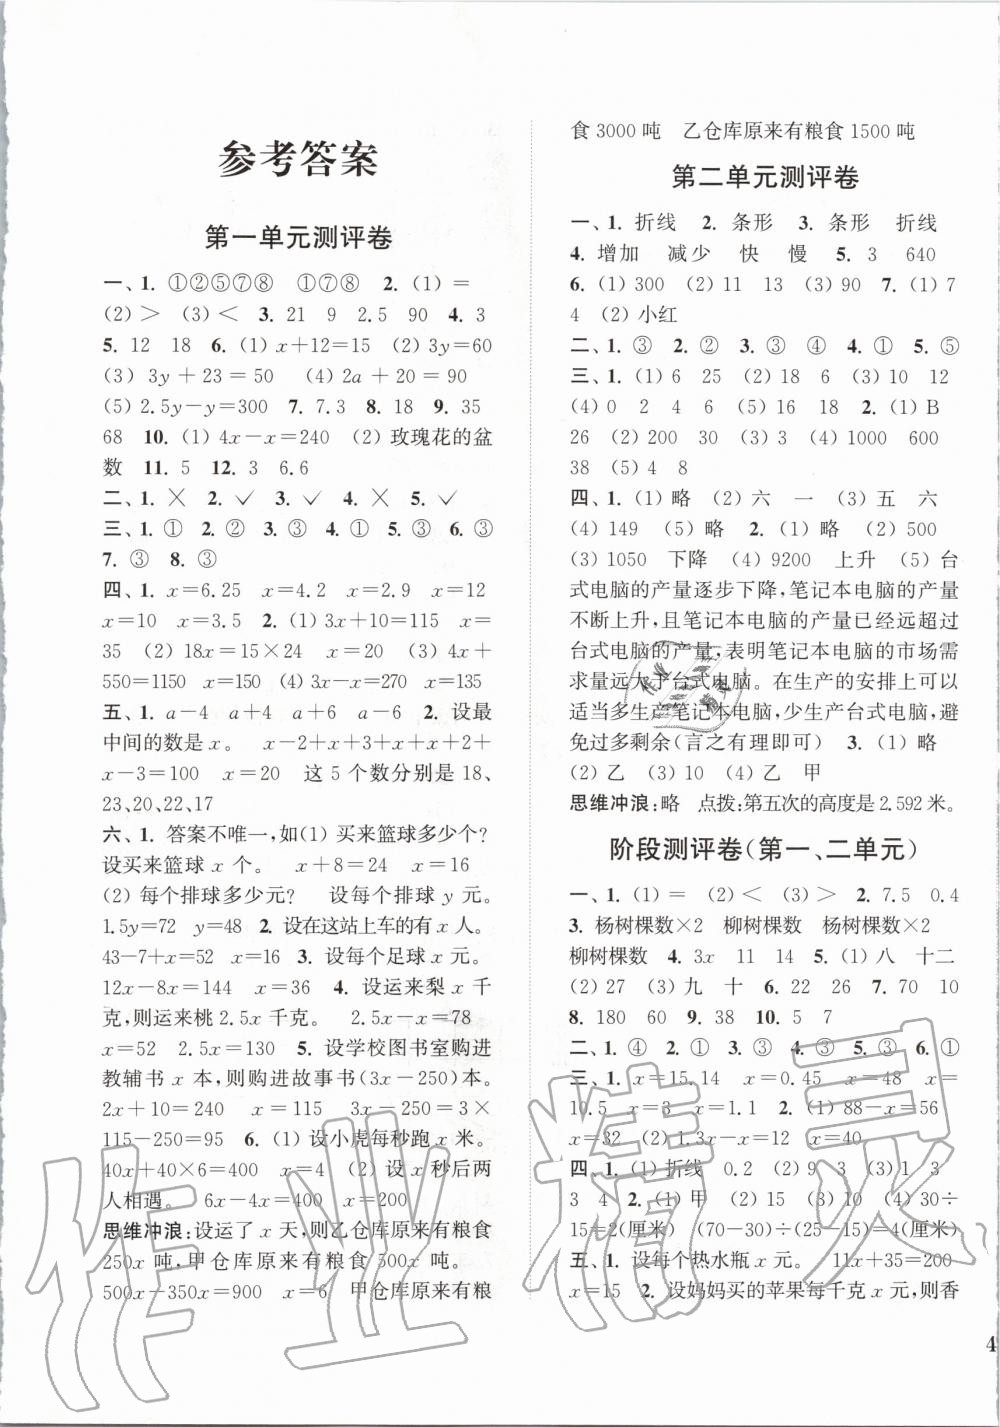 参考答案
第一单元测评卷
一、1. ①②⑤⑦⑧ ①⑦⑧ 2. (1)=
(2)> (3)< 3. 21 9 2.5 90 4. 3
5. 12 18 6. (1) x+12=15 (2) 3y=60
(3) 3y+23=50 (4) 2a+20=90
(5) 2.5y-y=300 7. 7.3 8. 18 9. 35
68 10. (1) 4x-x=240 (2) 玫瑰花的盆
数 11. 5 12. 3 6.6
二、1. × 2. ✓ 3. ✓ 4. × 5. ✓
三、1. ① 2. ② 3. ③ 4. ① 5. ③ 6. ③
7. ③ 8. ③
四、1. x=6.25 x=4.2 x=2.9 x=12
x=10 x=3.5 2. (1) 3x+10=115 x=
35 (2) 18x=15×24 x=20 (3) 4x+
550=1150 x=150 (4) 3x-x=270 x=135
五、1. a-4 a+4 a+6 a-6 2. 设最
中间的数是 x。 x-2+x+3+x+x+2+
x-3=100 x=20 这 5 个数分别是 18、
23、20、22、17
六、1. 答案不唯一,如(1) 买来篮球多少个?
设买来篮球 x 个。 x+8=24 x=16
(2) 每个排球多少元? 设每个排球 y 元。
1.5y=72 y=48 2. 设在这站上车的有 x 人。
43-7+x=52 x=16 3. 设每个足球 x 元。
12x-8x=144 x=36 4. 设运来梨 x 千
克,则运来桃 2.5x 千克。 2.5x-x=78
x=52 2.5x=130 5. 设学校图书室购进
教辅书 x 本,则购进故事书(3x-250)本。
2x+10=240 x=115 3x-250=3×
115-250=95 6. (1) 设小虎每秒跑 x 米。
40x+40×6=400 x=4 (2) 设 x 秒后两
人相遇。 6x-4x=400 x=200
思维冲浪:设运了 x 天,则乙仓库原来有粮食
250x 吨,甲仓库原来有粮食 500x 吨。
500x-350x=900 x=6 甲仓库原来有粮
食 3000 吨 乙仓库原来有粮食 1500 吨
第二单元测评卷
一、1. 折线 2. 条形 3. 条形 折线
4. 增加 减少 快 慢 5. 3 640
6. (1) 300 (2) 11 13 (3) 90 7. (1) 7
4 (2) 小红
二、1. ③ 2. ② 3. ③ ④ 4. ① 5. ⑤
三、1. (1) 6 25 (2) 18 6 (3) 10 12
(4) 0 2 4 6 (5) 16 18 2. (1) B
26 (2) 200 30 (3) 3 (4) 1000 600
38 (5) 4 8
四、1. (1) 略 (2) 六 一 (3) 五 六
(4) 149 (5) 略 2. (1) 略 (2) 500
(3) 1050 下降 (4) 9200 上升 (5) 台
式电脑的产量逐步下降,笔记本电脑的产量
不断上升,且笔记本电脑的产量已经远超过
台式电脑的产量,表明笔记本电脑的市场需
求量远大于台式电脑。在生产的安排上可以
适当多生产笔记本电脑,少生产台式电脑,避
免过多剩余(言之有理即可) 3. (1) 略
(2) 乙 (3) 10 (4) 乙 甲
思维冲浪:略 点拨:第五次的高度是 2.592 米。
阶段测评卷(第一、二单元)
一、1. (1)= (2)< (3)> 2. 7.5 0.4
3. 杨树棵数×2 柳树棵数 杨树棵数×2
柳树棵数 4. 3x 11 14 5. (1) 八 十二
(2) 27 (3) 九 十 6. 22 26 7. 70 10
8. 180 60 9. 38 10. 5 7
二、1. ④ 2. ① 3. ③ 4. ③ 5. ③ 6. ①
三、1. x=15.14 x=0.45 x=48 x=
10.5 x=3 x=1.1 2. (1) 88-x=56
x=32 (2) 1.3x-x=12 x=40
四、1. (1) 折线 0.2 (2) 9 3 (3) 1 3
3 4 2. (1) 甲 (2) 15 (3) 10 (4) 30÷
15=2(厘米) (70-30)÷(25-15)=4(厘米)
五、1. 设每个热水瓶 x 元。 11x+35=200
x=15 2. 设妈妈买的苹果每千克 x 元,则香
4
作业精灵